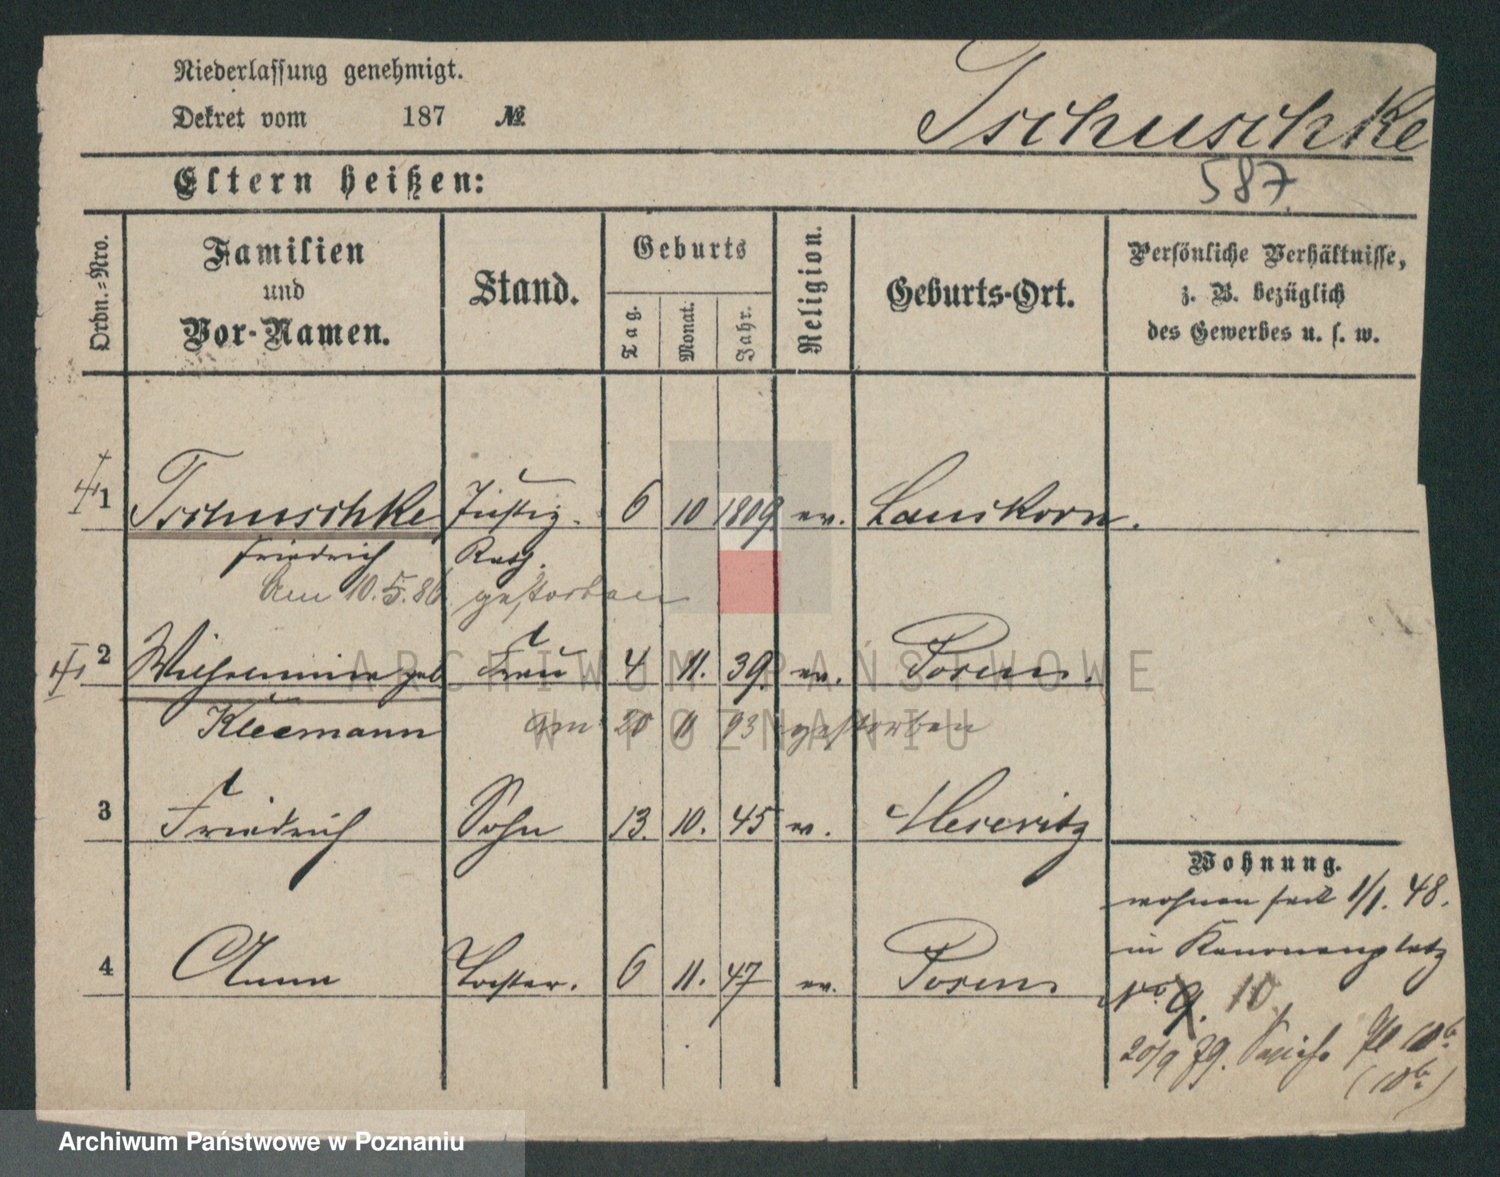 Niederlassung genehmigt.
Dekret vom 187 №
Tschuschke
587.
Eltern heißen:
Ordn.-Nro.
Familien
und
Vor-Namen.
Stand.
Geburts
Tag.
Monat.
Jahr.
Religion.
Geburts-Ort.
Persönliche Verhältnisse,
z. B. bezüglich
des Gewerbes u. s. w.
1 Tschuschke Justiz- 6 10 1809 ev. Lauskorn.
Friedrich Rath.
Am 10.5.86 gestorben
2 Wilhelmine geb Frau 4 11. 39 ev. Posen.
Kleemann am 20 11 93 gestorben
3 Friedrich Sohn 13. 10. 45 ev. Meseritz
Wohnung.
wohnen seit 1/1. 48.
in Kanonenplatz
No 9. 10
4 Anna Tochter. 6 11. 47 ev. Posen
20/9 79. Pl 10b.
(10b.)
ARCHIWUM PAŃSTWOWE
W POZNANIU
Archiwum Państwowe w Poznaniu